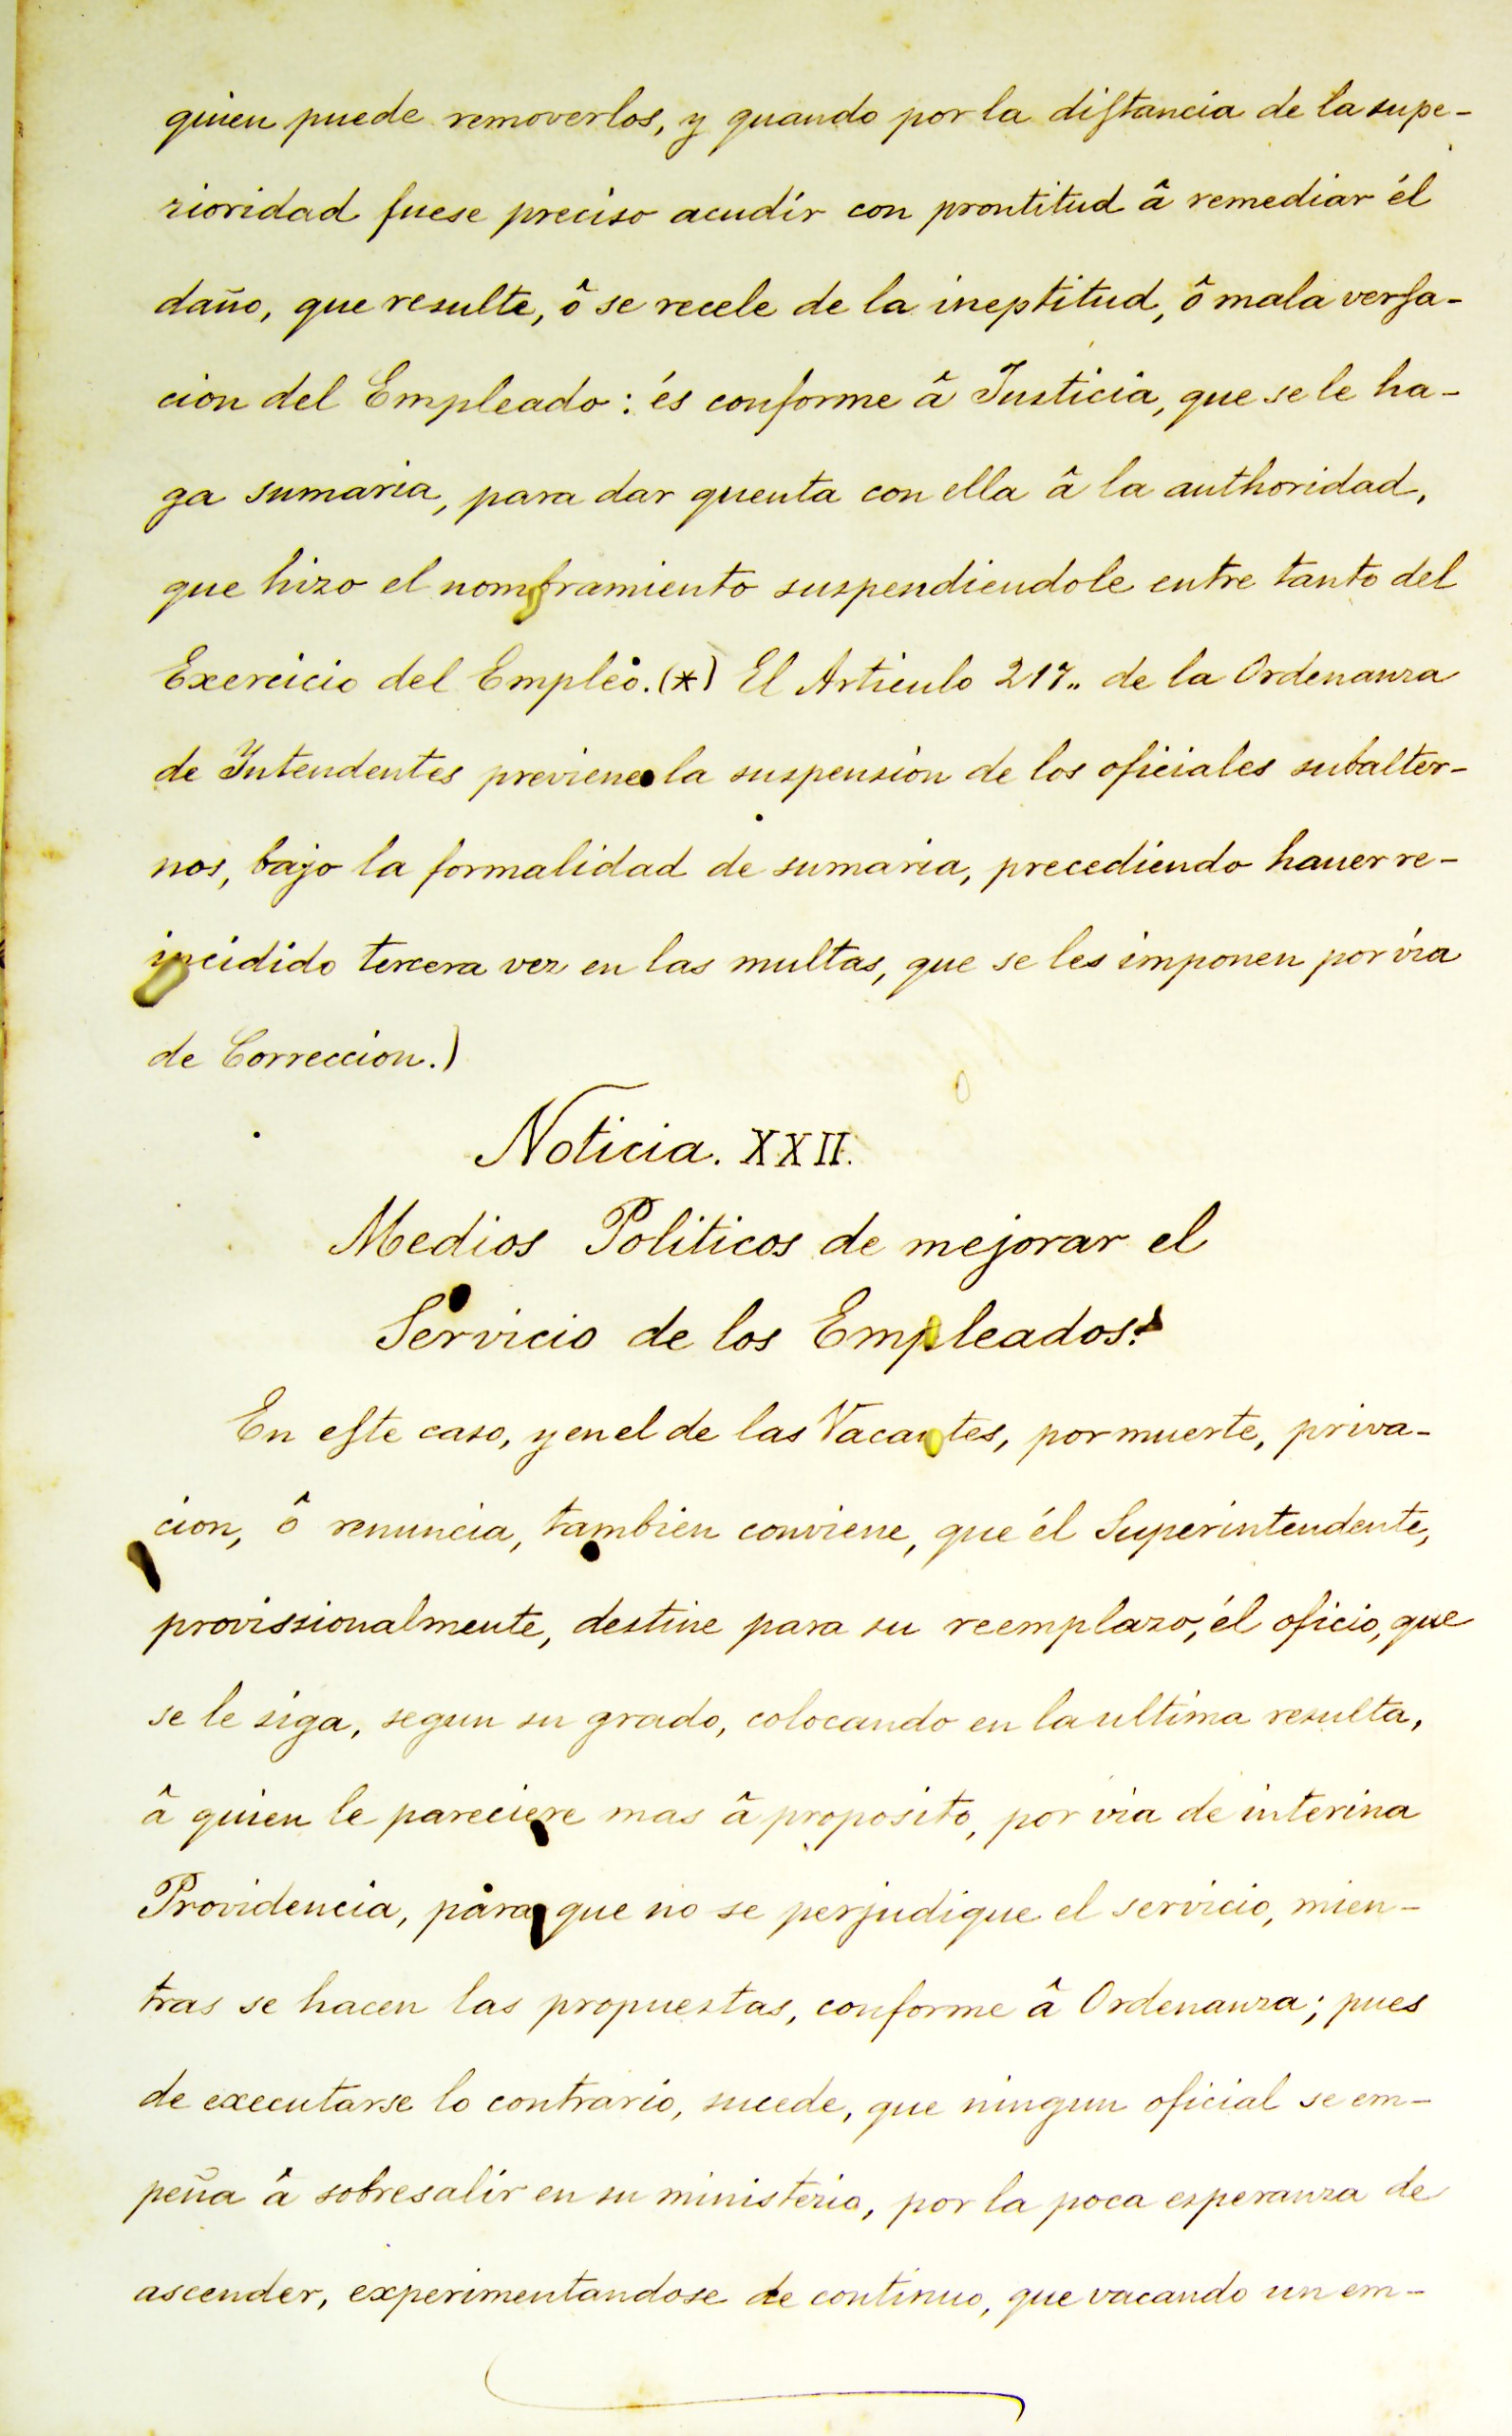 quien puede removerlos, y quando por la distancia de la supe-
rioridad fuese preciso acudir con prontitud â remediar él
daño, que resulte, ô se recele de la ineptitud, ô mala versa-
cion del Empleado: és conforme â Justicia, que se le ha-
ga sumaria, para dar quenta con ella â la authoridad,
que hizo el nombramiento suspendiendole entre tanto del
Exercicio del Empleo. (*) El Articulo 217„ de la Ordenanza
de Intendentes previene la suspension de los oficiales subalter-
nos, bajo la formalidad de sumaria, precediendo hauer re-
incidido tercera vez en las multas, que se les imponen por via
de Correccion.)
Noticia. XXII.
Medios Politicos de mejorar el
Servicio de los Empleados.
En este caso, y en el de las Vacantes, por muerte, priva-
cion, ô renuncia, tambien conviene, que él Superintendente,
provissionalmente, destine para su reemplazo, él oficio, que
se le siga, segun su grado, colocando en la ultima resulta,
â quien le pareciere mas â proposito, por via de interina
Providencia, para que no se perjudique el servicio, mien-
tras se hacen las propuestas, conforme â Ordenanza; pues
de executarse lo contrario, sucede, que ningun oficial se em-
peña â sobresalir en su ministerio, por la poca esperanza de
ascender, experimentandose de continuo, que vacando un em-